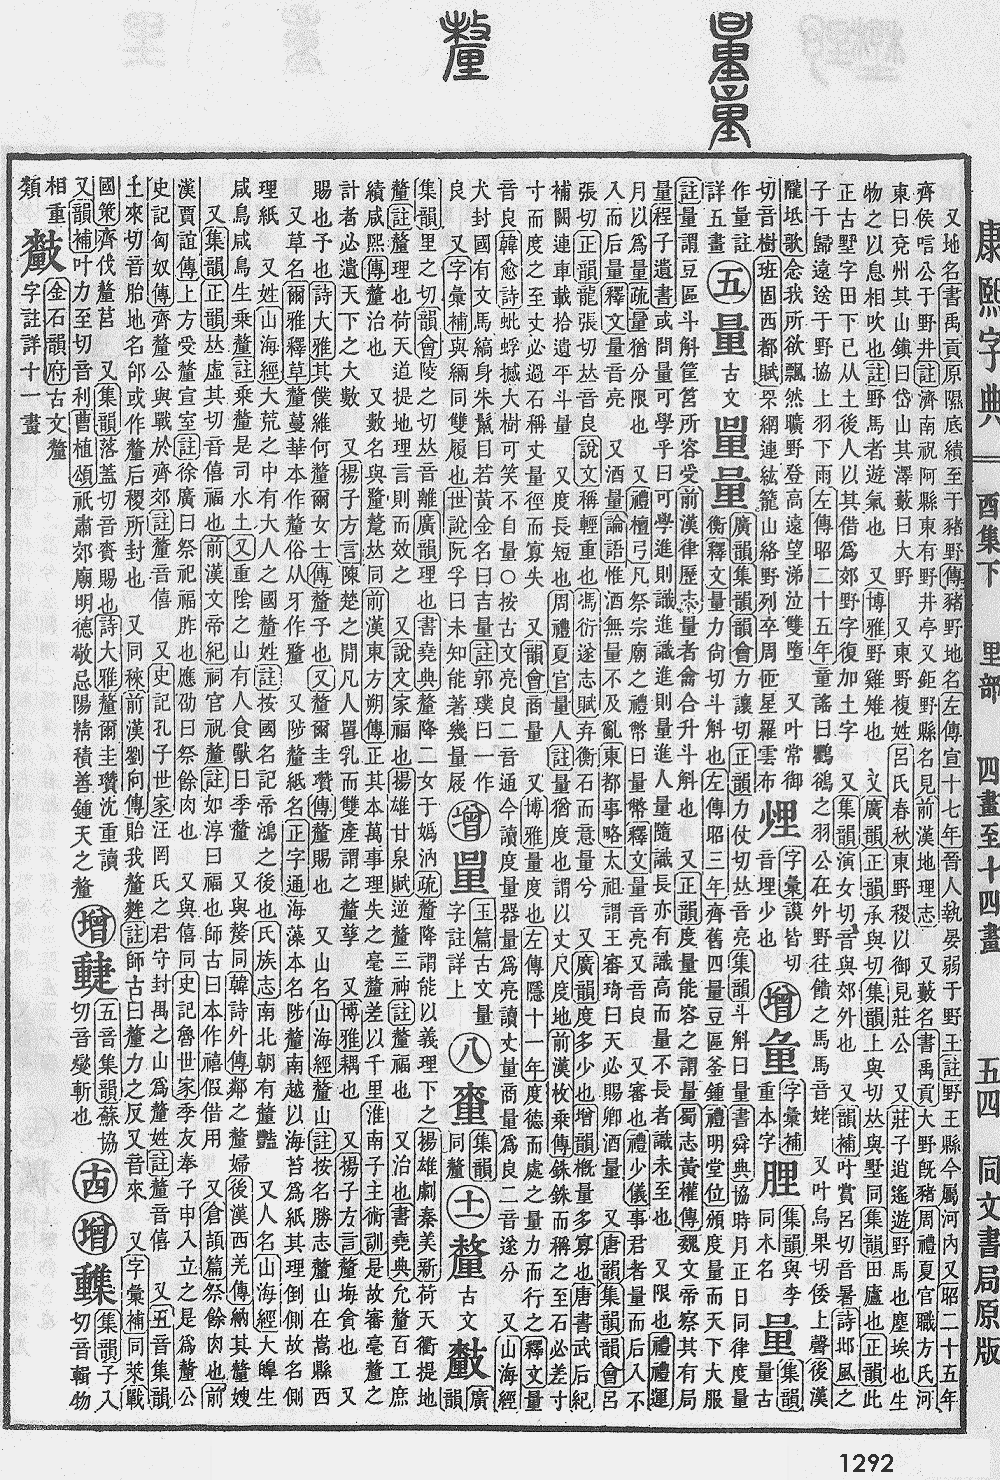 康熙字典 酉集下 里部 四畫至十四畫 五四 同文書局原版
又地名書禹貢原隰底績至于豬野傳豬野地名左傳宣十七年晉人執晏弱于野王註野王縣今屬河內又昭二十五年
齊侯唁公于野井註濟南祝阿縣東有野井亭又鉅野縣名見前漢地理志 又藪名書禹貢大野旣豬周禮夏官職方氏河
東曰兗州其山鎮曰岱山其澤藪曰大野 又東野複姓呂氏春秋東野稷以御見莊公 又莊子逍遙遊野馬也塵埃也生
物之以息相吹也註野馬者遊氣也 又博雅野雞雉也 又廣韻正韻承與切集韻上與切𠀤與墅同集韻田廬也正韻此
正古墅字田下已从土後人以其借爲郊野字復加土字 又集韻演女切音與郊外也 又韻補叶賞呂切音暑詩邶風之
子于歸遠送于野協上羽下雨左傳昭二十五年童謠曰鸜鵒之羽公在外野往饋之馬馬音姥 又叶烏果切倭上聲後漢
隴坻歌念我所欲飄然曠野登高遠望涕泣雙墮 又叶常御
切音樹班固西都賦罘網連紘籠山絡野列卒周匝星羅雲布 字彙謨皆切音埋少也 增 字彙補重本字 集韻與李同木名 量 集韻量古
作量註詳五畫 五 量 古文 量 廣韻集韻韻會力讓切正韻力仗切𠀤音亮集韻斗斛曰量書舜典協時月正日同律度量
衡釋文量力尚切斗斛也左傳昭三年齊舊四量豆區釜鍾禮明堂位頒度量而天下大服
註量謂豆區斗斛筐筥所容受前漢律歷志量者龠合升斗斛也 又正韻度量能容之謂量蜀志黃權傳魏文帝察其有局
量程子遺書或問量可學乎曰可學進則識進識進則量進人量隨識長亦有識高而量不長者識未至也 又限也禮禮運
月以爲量疏量猶分限也 又禮檀弓凡祭宗廟之禮幣曰量幣釋文量音亮又音良 又審也禮少儀事君者量而后入不
入而后量釋文量音亮 又酒量論語惟酒無量不及亂東都事略太祖謂王審琦曰天必賜卿酒量 又唐韻集韻韻會呂
張切正韻龍張切𠀤音良說文稱輕重也馮衍遂志賦弃衡石而意量兮 又廣韻度多少也增韻槪量多寡也唐書武后紀
補闕連車載拾遺平斗量 又度長短也周禮夏官量人註量猶度也謂以丈尺度地前漢枚乗傳銖銖而稱之至石必差寸
寸而度之至丈必過石稱丈量徑而寡失 又韻會商量 又博雅量度也左傳隱十一年度德而處之量力而行之釋文量
音良韓愈詩蚍蜉撼大樹可笑不自量○按古文亮良二音通今讀度量器量爲亮讀丈量商量爲良二音遂分 又山海經
犬封國有文馬縞身朱鬣目若黃金名曰吉量註郭璞曰一作
良 又字彙補與緉同雙履也世說阮孚曰未知能著幾量屐 增 玉篇古文量字註詳上 八 集韻同釐 十一 釐 古文 廣韻
集韻里之切韻會陵之切𠀤音離廣韻理也書堯典釐降二女于嬀汭疏釐降謂能以義理下之揚雄劇秦美新荷天衢提地
釐註釐理也荷天道提地理言則而效之 又說文家福也揚雄甘泉賦逆釐三神註釐福也 又治也書堯典允釐百工庶
績咸熙傳釐治也 又數名與氂𠀤同前漢東方朔傳正其本萬事理失之毫釐差以千里淮南子主術訓是故審毫釐之
計者必遺天下之大數 又揚子方言陳楚之閒凡人嘼乳而雙產謂之釐孳 又博雅耦也 又揚子方言釐貪也 又
賜也予也詩大雅其僕維何釐爾女士傳釐予也又釐爾圭瓚傳釐賜也 又山名山海經釐山註按名勝志釐山在嵩縣西
又草名爾雅釋草釐蔓華本作釐俗从牙作 又陟釐紙名正字通海藻本名陟釐南越以海苔爲紙其理倒側故名側
理紙 又姓山海經大荒之中有大人之國釐姓註按國名記帝鴻之後也氏族志南北朝有釐豔 又人名山海經大皥生
咸鳥咸鳥生乗釐註乗釐是司水土又重陰之山有人食獸曰季釐 又與嫠同韓詩外傳鄰之釐婦後漢西羌傳納其釐嫂
又集韻正韻𠀤虛其切音僖福也前漢文帝紀祠官祝釐註如淳曰福也師古曰本作禧假借用 又倉頡篇祭餘肉也前
漢賈誼傳上方受釐宣室註徐廣曰祭祀福胙也應劭曰祭餘肉也 又與僖同史記魯世家季友奉子申入立之是爲釐公
史記匈奴傳齊釐公與戰於齊郊註釐音僖 又史記孔子世家汪罔氏之君守封禺之山爲釐姓註釐音僖 又五音集韻
土來切音胎地名郃或作釐后稷所封也 又同秾前漢劉向傳貽我釐麰註師古曰釐力之反又音來 又字彙補同萊戰
國策齊伐釐莒 又集韻落蓋切音賚賜也詩大雅釐爾圭瓚沈重讀
又韻補叶力至切音利曹植頌祇肅郊廟明德敬忌陽精積善鍾天之釐 增 五音集韻蘇協切音燮斬也 十四 增 集韻子入切音輯物
相重 金石韻府古文釐字註詳十一畫
類
1292